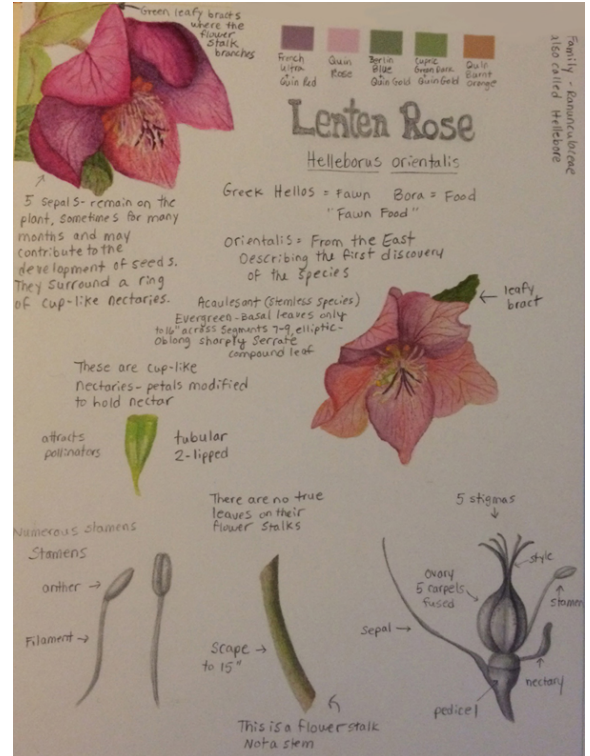 Green leafy bracts
where the
flower
stalk
branches
French
Ultra
Quin Red
Quin
Rose
Berlin
Blue
Quin Gold
Cupric
Green Pure
Quin Gold
Quin
Burnt
Orange
Family - Ranunculaceae
also called Hellebore
Lenten Rose
Helleborus orientalis
Greek Hellos = Fawn Bora = Food
"Fawn Food"
5 Sepals- remain on the
plant, sometimes for many
months and may
contribute to the
development of seeds.
They surround a ring
of cup-like nectaries.
Orientalis = From the East
Describing the first discovery
of the species
Acaulesant (stemless species)
Evergreen-Basal leaves only
to 16" across Segments 7-9, elliptic-
Oblong sharply Serrate
compound leaf
leafy
bract
These are cup-like
nectaries- petals modified
to hold nectar
attracts
pollinators
tubular
2-lipped
There are no true
leaves on their
flower stalks
Numerous stamens
Stamens
anther
Filament
Scape
to 15"
This is a flower stalk
Not a stem
5 stigmas
style
ovary
5 carpels
fused
stamen
Sepal
nectary
pedicel